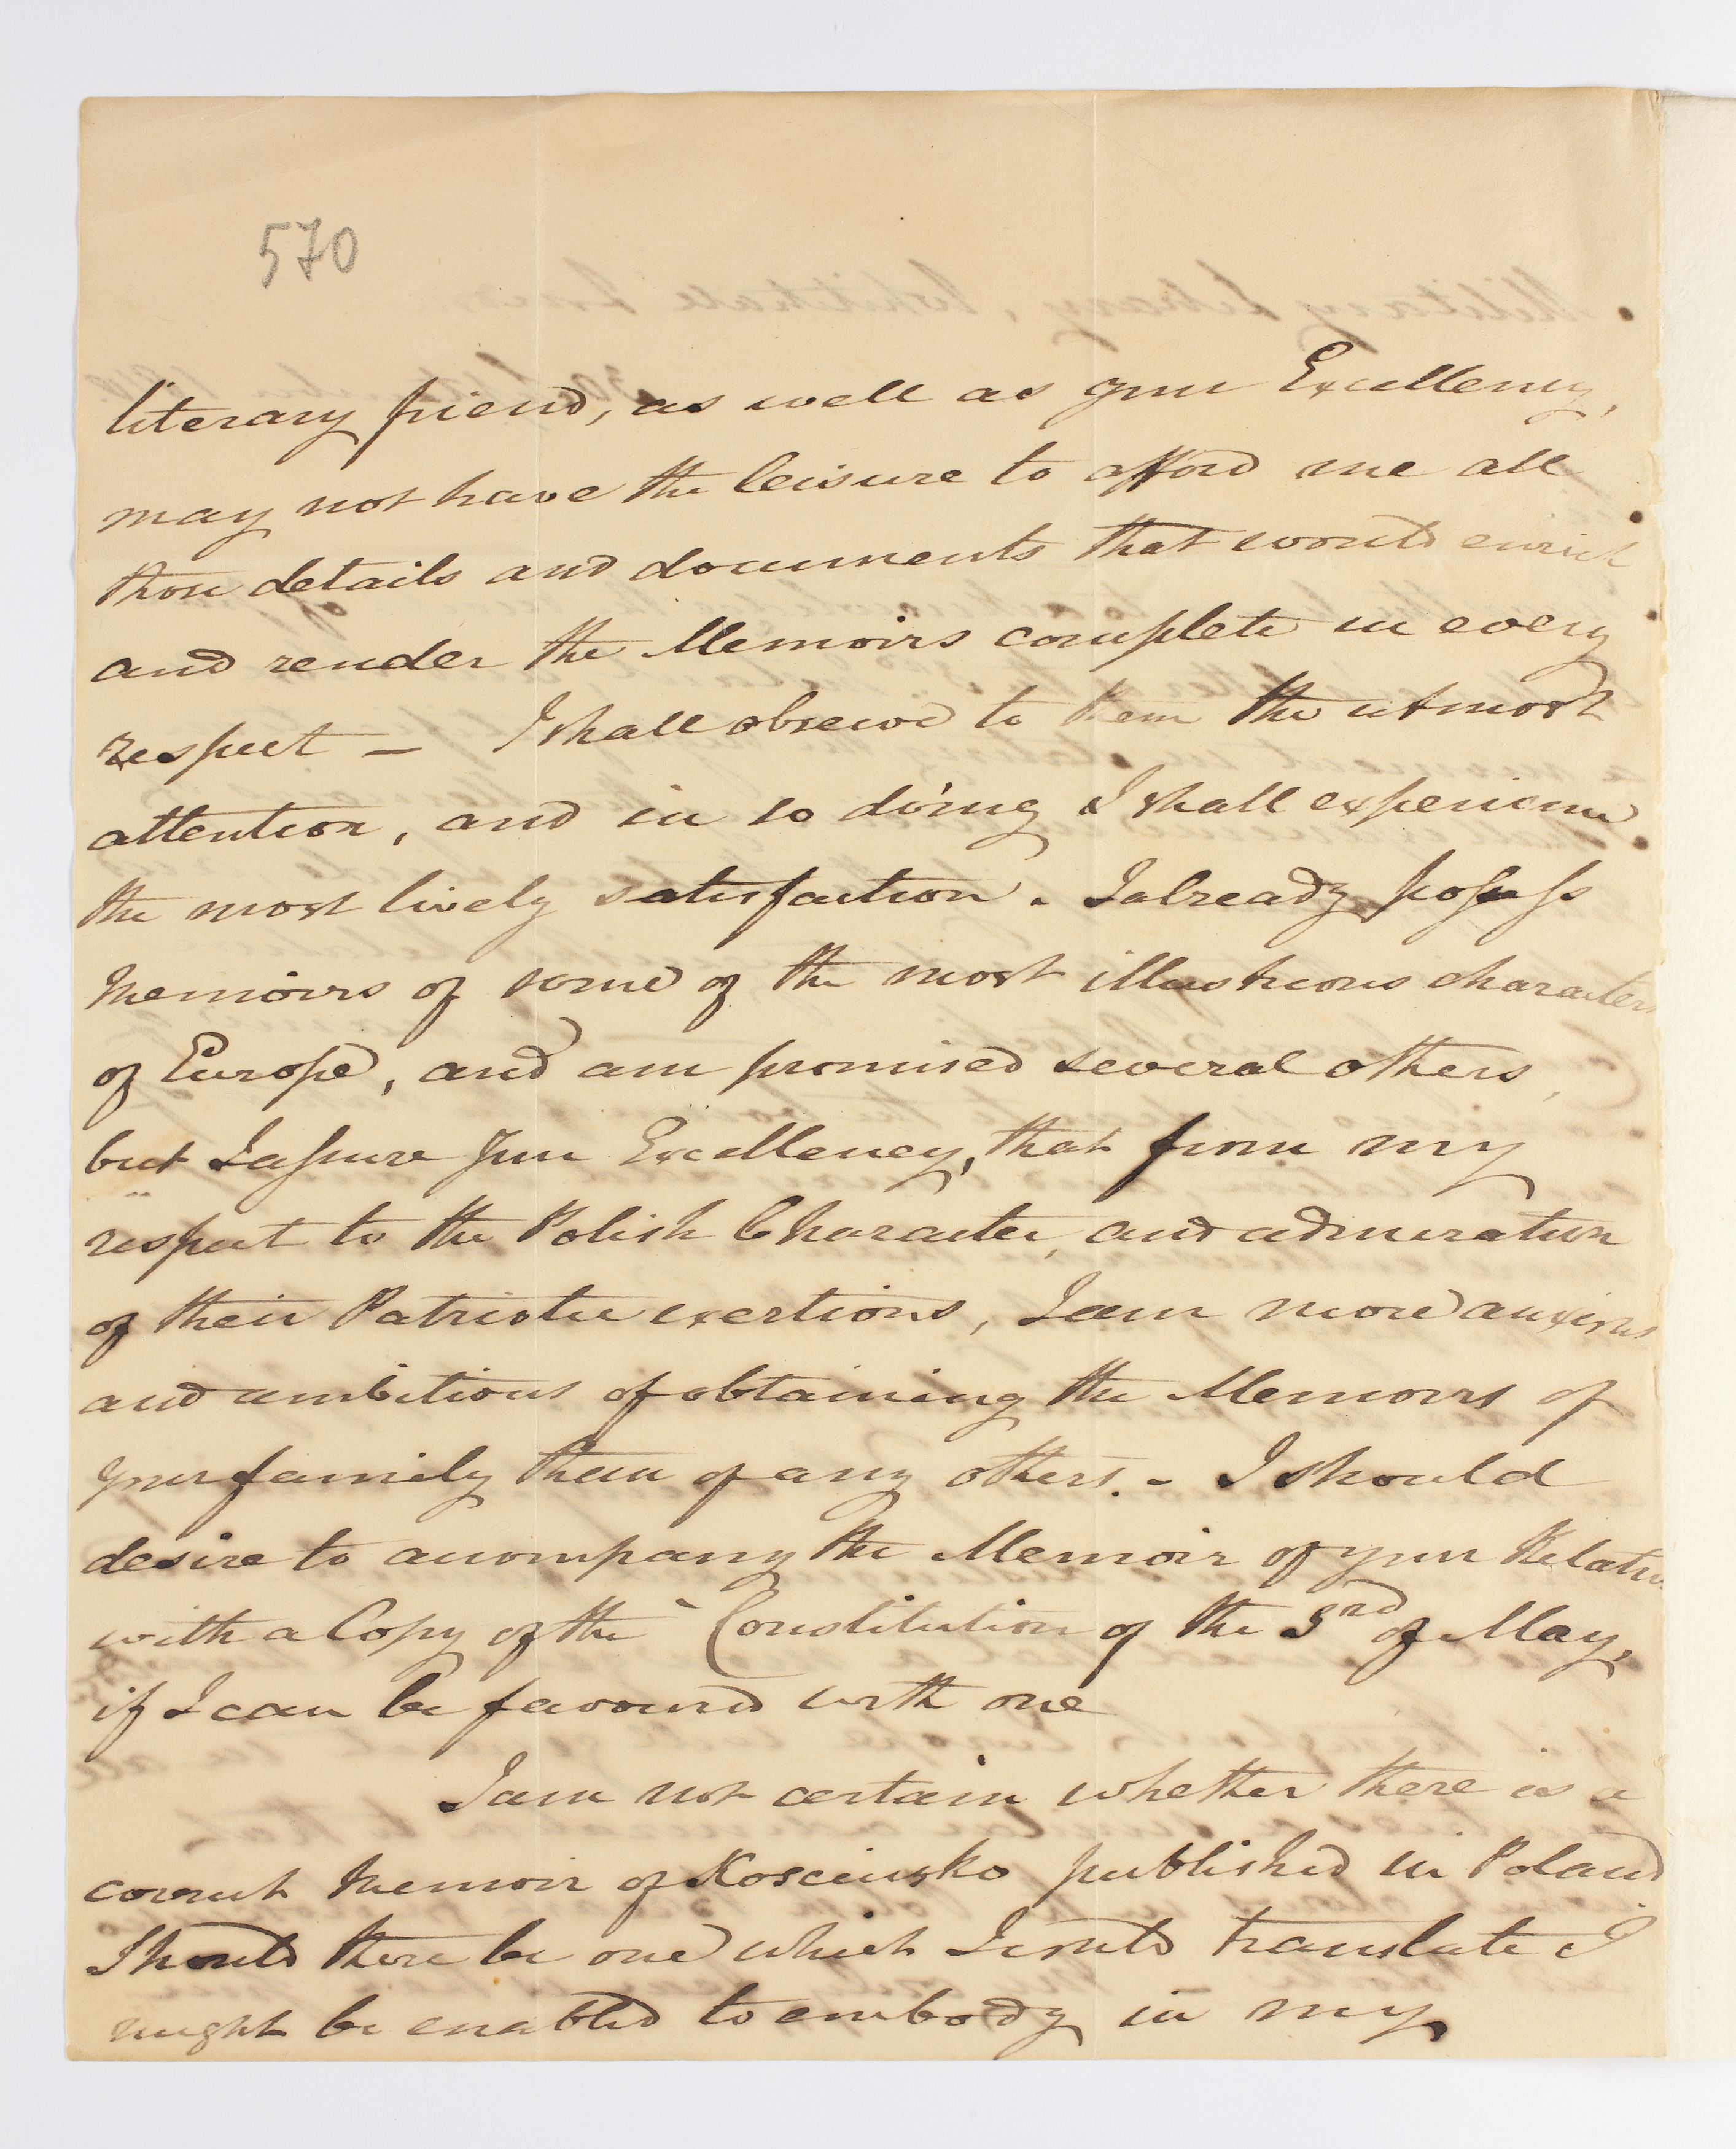 570
literary friend, as well as your Excellency,
may not have the leisure to afford me all
those details and documents that would enrich
and render the Memoirs complete in every
respect — I shall observe to them the utmost
attention, and in so doing I shall experience
the most lively satisfaction. I already possess
Memoirs of some of the most illustrious characters
of Europe, and am promised several others,
but I assure your Excellency, that from my
respect to the Polish Character, and admiration
of their Patriotic exertions, I am more anxious
and ambitious of obtaining the Memoirs of
your family than of any others. - I should
desire to accompany the Memoir of your Relative
with a Copy of the Constitution of the 3rd of May,
if I can be favoured with one
I am not certain whether there is a
correct Memoir of Kosciusko published in Poland
Should there be one which I could translate I
might be enabled to embody in my